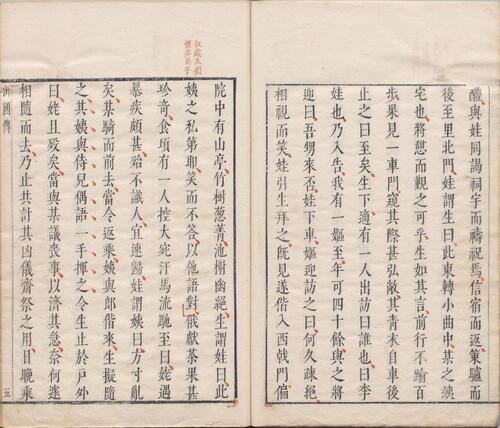 醴與娃同謁祠宇而禱祝焉信宿而返策驢而
後至里北門娃謂生曰此東轉小曲中某之姨
宅也將憇而覲之可乎生如其言前行不踰百
步果見一車門窺其際甚弘敞其青衣自車後
止之曰至矣生下適有一人出訪曰誰也曰李
娃也乃入告我有一嫗至年可四十餘與之將
迎曰吾甥來否娃下車嫗迎訪之曰何久疎絕
相視而笑娃引生拜之既見遂偕入西戟門偏
叙處太煩
便非高手
院中有山亭竹樹葱菁池榭幽絕生謂娃曰此
姨之私第耶笑而不答以他語對俄獻茶果甚
珍奇食頃有一人控大宛汗馬流馳至曰姥遇
暴疾頗甚殆不識人宜速歸娃謂姨曰方寸亂
矣某騎而前去當令返乘姨與郎偕來生擬隨
之其姨與侍兒偶語一手揮之令生止於戶外
曰姥且歿矣當與某議喪事以濟其急奈何遽
相隨而去乃止共計其凶儀齋祭之用日晚乘
汧國傳
五